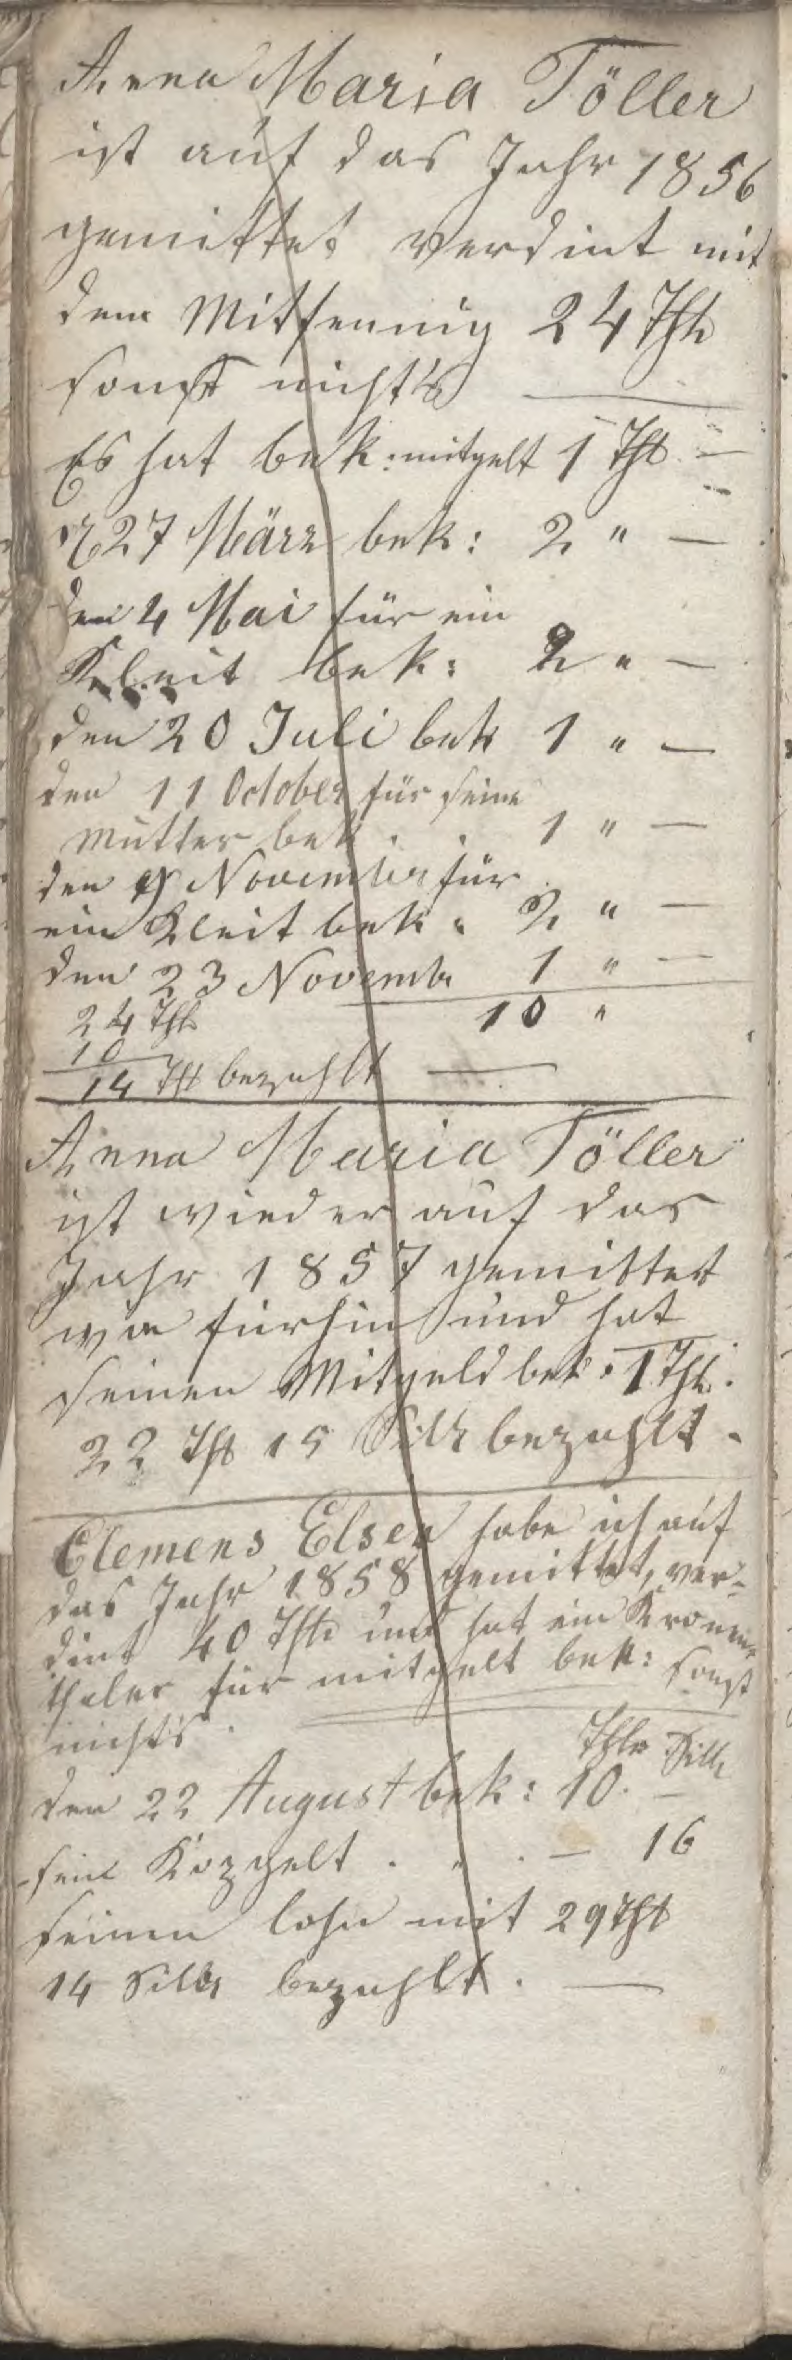 Anna Maria Töller
ist auf das Jahr 1856
gemittet verdint mit
dem Mitfennig 24 Thl
sonst nicht's
Es hat bek: mitgelt 1 Thl —
27 März bek: 2 " —
den 4 Mai für ein
Kleit bek: 2 " —
den 20 Juli bek 1 " —
den 11 October für seine
Mutter bek . . 1 " —
den 9 November für
ein Kleit bek. 2 " —
den 23 Novembr 1 " —
24 Thl 10 "
10
14 Thl bezahlt —
Anna Maria Töller
ist wieder auf das
Jahr 1857 gemittet
wie fürhin und hat
seinen Mitgeld bek. 1 Thl.
22 Thl 15 Silb bezahlt.
Clemens Elsen habe ich auf
das Jahr 1858 gemittet, ver-
dint 40 Thlr und hat ein Kronen-
thaler für mitgelt bek: sonst
nichts.
Thlr Silb
den 22 August bek: 10. —
sein gelt . . . — 16
seinen lohn mit 29 Thl
14 Silb bezahlt. —